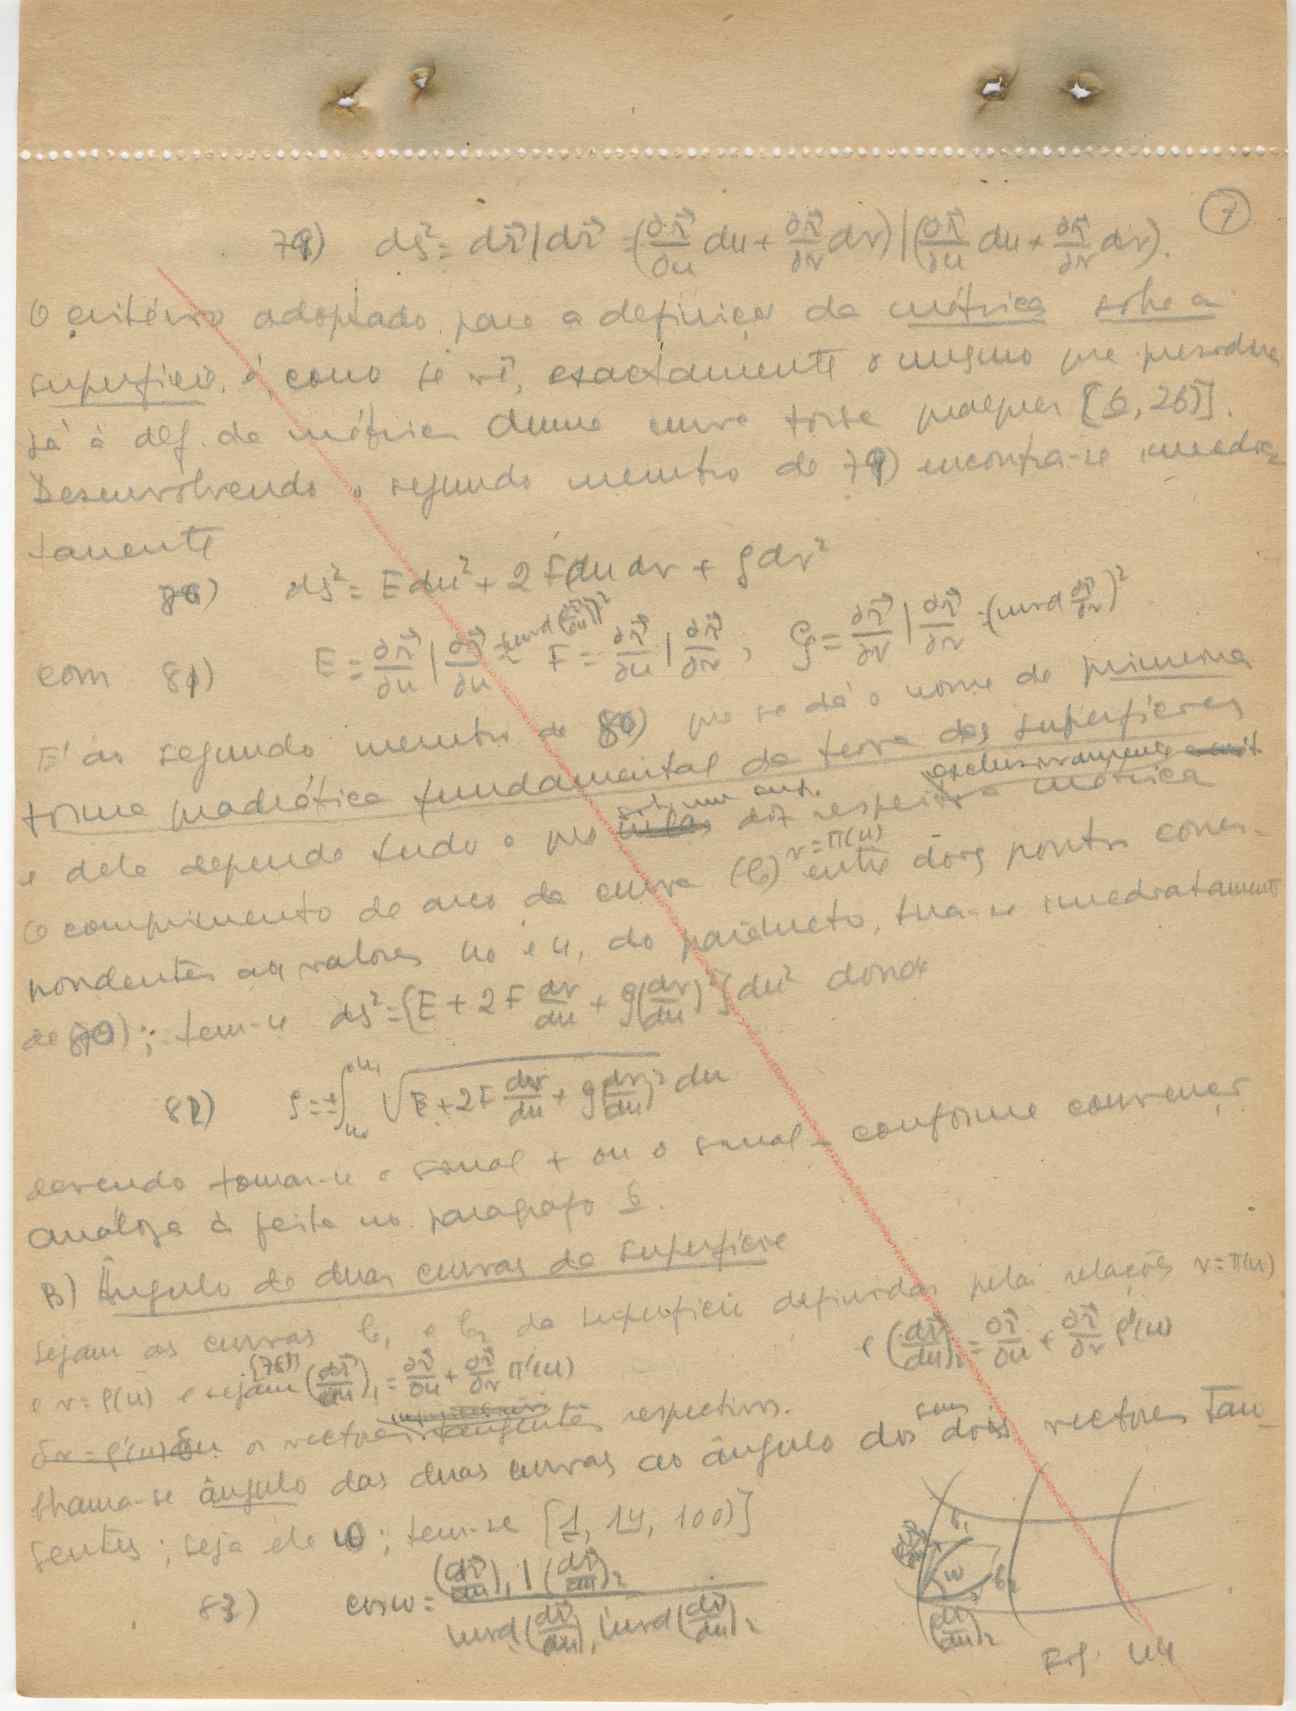 7
79) ds² = dr⃗ | dr⃗ = (∂r⃗/∂u du + ∂r⃗/∂v dv) | (∂r⃗/∂u du + ∂r⃗/∂v dv).
O critério adoptado para a definição da métrica sobre a
superfície, é, como se vê, exactamente o mesmo que presidiu
já à def. da métrica duma curva torsa qualquer [6, 26)].
Desenvolvendo o segundo membro de 79) encontra-se imedia-
tamente
80) ds² = E du² + 2 F du dv + G dv²
com 81) E = ∂r⃗/∂u | ∂r⃗/∂u = (mod ∂r⃗/∂u)² F = ∂r⃗/∂u | ∂r⃗/∂v ; G = ∂r⃗/∂v | ∂r⃗/∂v = (mod ∂r⃗/∂v)²
E' ao segundo membro de 80) que se dá o nome de primeira
forma quadrática fundamental da teoria das superfícies
e dela depende tudo o que diz respeito exclusivamente à métrica
O comprimento de arco da curva (C) v = π(u) entre dois pontos corres-
pondentes aos valores u₀ e u₁ do parâmetro, tira-se imediatamente
de 80); tem-se ds² = [E + 2 F dv/du + G (dv/du)²] du² donde
82) s = ± ∫ᵤ₀ᵘ¹ √(E + 2F dv/du + G (dv/du)²) du
devendo tomar-se o sinal + ou o sinal – conforme convenção
análoga à feita no paragrafo 6.
B) Ângulo de duas curvas da superfície
Sejam as curvas C₁ e C₂ da superfície definidas pelas relações v = π(u)
e v = ρ(u) e sejam [78)] (dr⃗/du)₁ = ∂r⃗/∂u + ∂r⃗/∂v π'(u) e (dr⃗/du)₂ = ∂r⃗/∂u + ∂r⃗/∂v ρ'(u)
δv = ρ'(u) δu os vectores tangentes respectivos.
Chama-se ângulo das duas curvas ao ângulo dos seus dois vectores tan-
gentes; seja ele ω; tem-se [1, 14, 100)]
83) cos ω = (dr⃗/du)₁ | (dr⃗/du)₂ / mod (dr⃗/du)₁ mod (dr⃗/du)₂
C₁
ω
C₂
(dr⃗/du)₂
Fig. 44